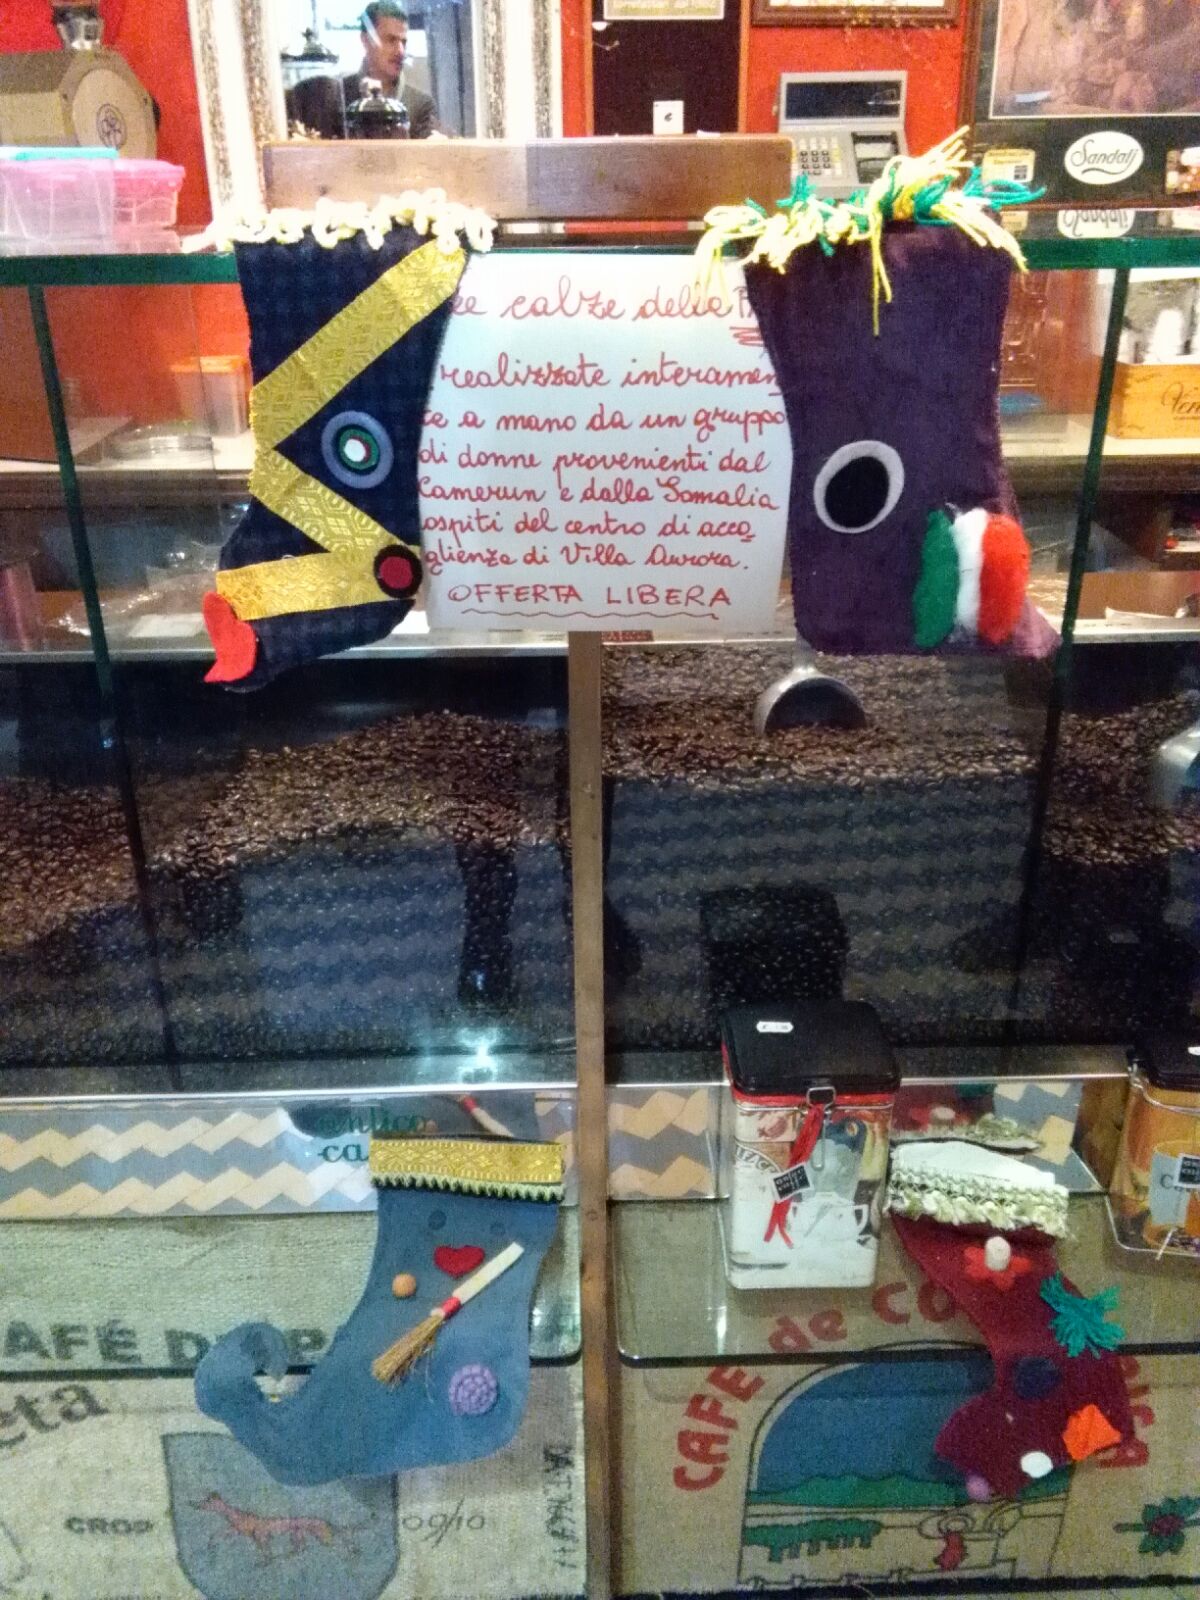 Sandalj
calze della
realizzate interamen
te a mano da un gruppo
di donne provenienti dal
Camerun e dalla Somalia
ospiti del centro di acco_
glienza di Villa Aurora.
OFFERTA LIBERA
antico
ca
CAFÉ de CO
CROP
09/10